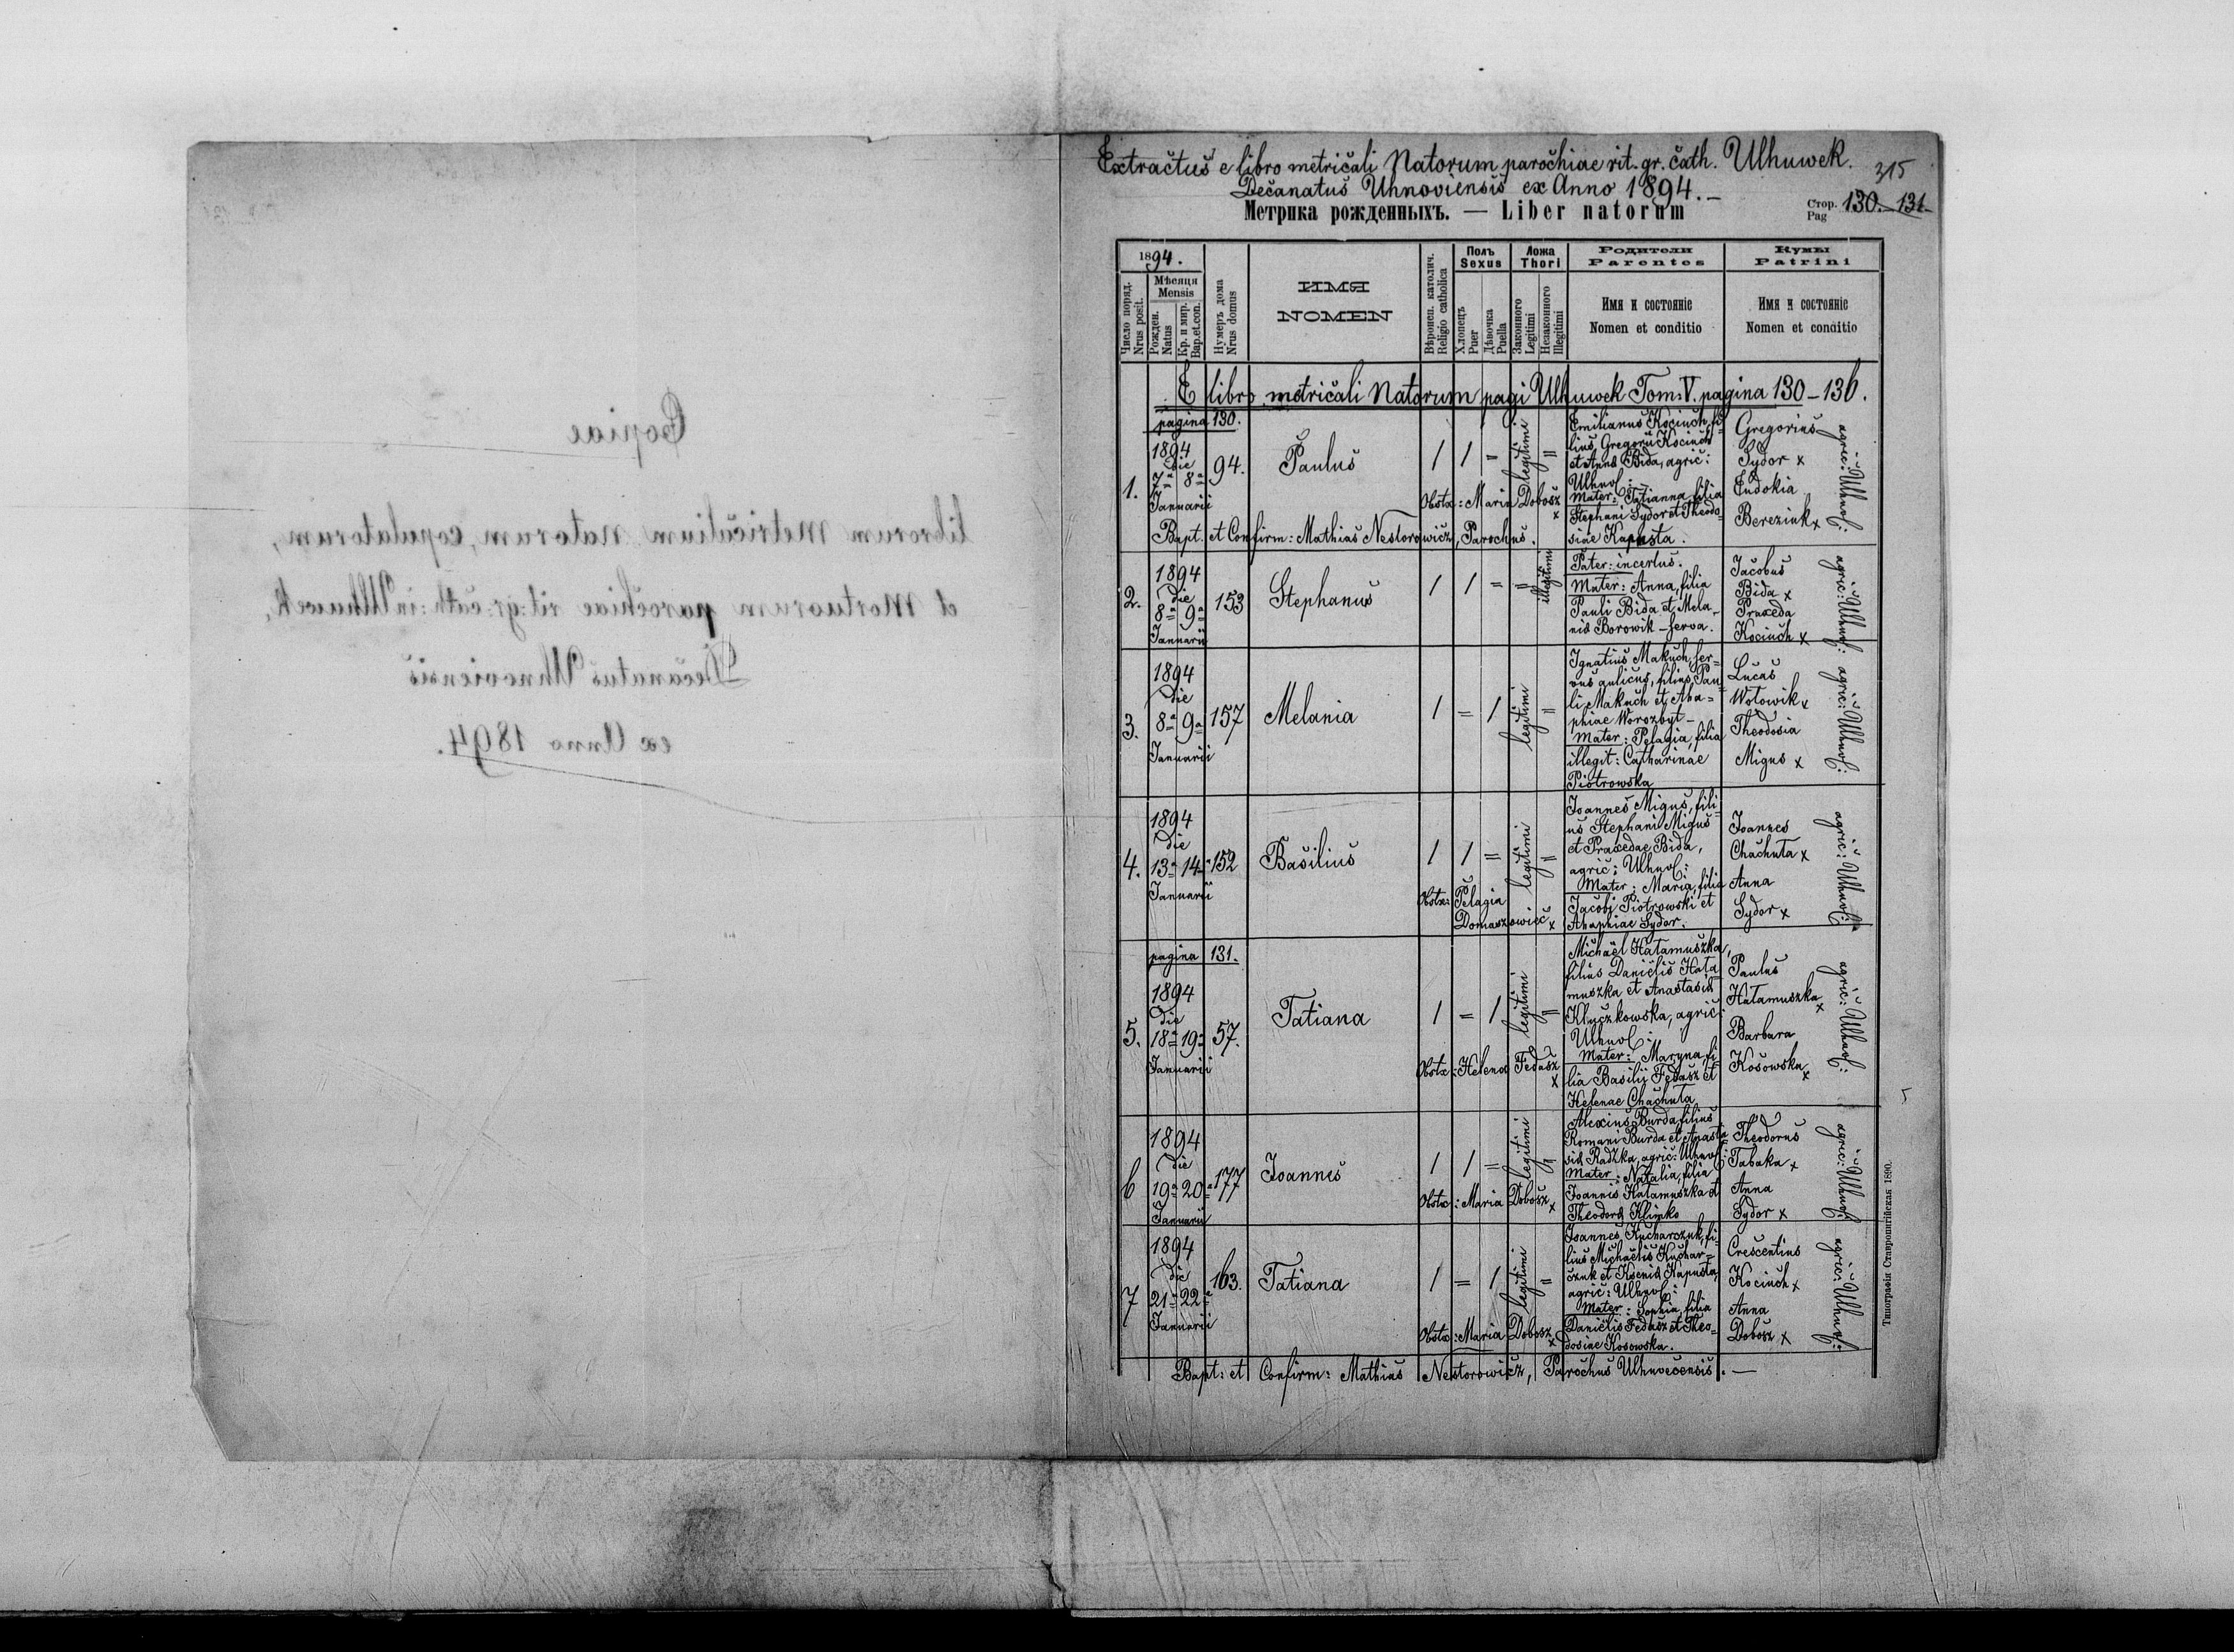 Copiae
librorum metricalium natorum, copulatorum,
et Mortuorum parochiae rit: gr: cath: in Ulhuwek,
Decanatus Uhnoviensis
ex Anno 1894.
Extractus e libro metricali Natorum parochiae rit. gr. cath. Ulhuwek.
315
Decanatus Uhnoviensis ex Anno 1894.-
Метрика рожденныхъ. — Liber natorum
Стор. Pag 130.-131-
1894.
Число поряд.
Nrus posit.
Мѣсяця
Mensis
Рожден.
Natus
Кр. и мир.
Bap.et.con.
Нумеръ дома
Nrus domus
ИМЯ
NOMEN
Вѣроисп. католич.
Religio catholica
Полъ
Sexus
Хлопецъ
Puer
Дѣвочка
Puella
Ложа
Thori
Законного
Legitimi
Незаконного
Illegitimi
Родители
Parentes
Имя и состояніе
Nomen et conditio
Кумы
Patrini
Имя и состояніе
Nomen et conditio
E libro metricali Natorum pagi Ulhuwek Tom: V. pagina 130-136.
pagina 130.
1.
1894
die
7a 8a
Januarii
94.
Paulus
1 1 =
legitimi
=
Obstx: Maria Dobosz x
Emilianus Kociuch, fi-
lius Gregorii Kociuch
et Anna Bida, agric:
Ulhuv:
Mater: Tatianna, filia
Stephani Sydor et Theodo-
siae Kapusta.
Gregorius
Sydor x
Eudokia
Bereziuk x
agric: Ulhuv:
Bapt. et Confirm: Mathias Nestorowicz, Parochus.
2.
1894
die
8a 9a
Januarii
153
Stephanus
1 1 = =
illegitimi
Pater: incertus.
Mater: Anna, filia
Pauli Bida et Mela-
nia Borowik - serva.
Jacobus
Bida x
Praxeda
Kociuch x
agric: Ulhuv:
3.
1894
die
8a 9a
Januarii
157
Melania
1 = 1
legitimi
=
Ignatius Makuch, ser-
vus aulicus, filius Pau-
li Makuch et Aha-
phiae Worozbyt -
Mater: Pelagia, filia
illegit: Catharinae
Piotrowska
Lucas
Wołowik x
Theodosia
Migus x
agric: Ulhuv:
4.
1894
die
13a 14a
Januarii
152
Basilius
1 1 =
legitimi
=
Obstx: Pelagia
Domaszowiec x
Joannes Migus, fili-
us Stephani Migus
et Praxedae Bida,
agric: Ulhuv:
Mater: Maria, filia
Jacobi Piotrowski et
Ahaphiae Sydor.
Joannes
Chachuta x
Anna
Sydor x
agric: Ulhuv:
pagina 131.
5.
1894
die
18a 19a
Januarii
57.
Tatiana
1 = 1
legitimi
=
Obstx: Helena Fedasz x
Michaël Hatamuszka,
filius Danielis Hata-
muszka et Anastasia
Kluczkowska, agric:
Ulhuv:
Mater: Maryna, fi-
lia Basilii Fedasz et
Helenae Chachuta
Paulus
Hatamuszka x
Barbara
Kosowska x
agric: Ulhuv:
6
1894
die
19a 20a
Januarii
177
Joannes
1 1 =
legitimi
=
Obstx: Maria Dobosz x
Alexius Burda, filius
Romani Burda et Anasta-
sia Radzka, agric: Ulhuv:
Mater: Natalia, filia
Joannis Hatamuszka et
Theodora Klimko
Theodorus
Tabaka x
Anna
Sydor x
agric: Ulhuv:
7
1894
die
21a 22a
Januarii
163.
Tatiana
1 = 1
legitimi
=
Obstx: Maria Dobosz x
Joannes Kucharczuk, fi-
lius Michaelis Kuchar-
czuk et Ksenia Kapusta,
agric: Ulhuv:
Mater: Sophia, filia
Danielis Fedasz et Theo-
dosiae Kosowska.
Crescentius
Kociuch x
Anna
Dobosz x
agric: Ulhuv:
Bapt: et Confirm: Mathias Nestorowicz, Parochus Ulhuvecensis. -
Типографія Ставропигійская 1890.